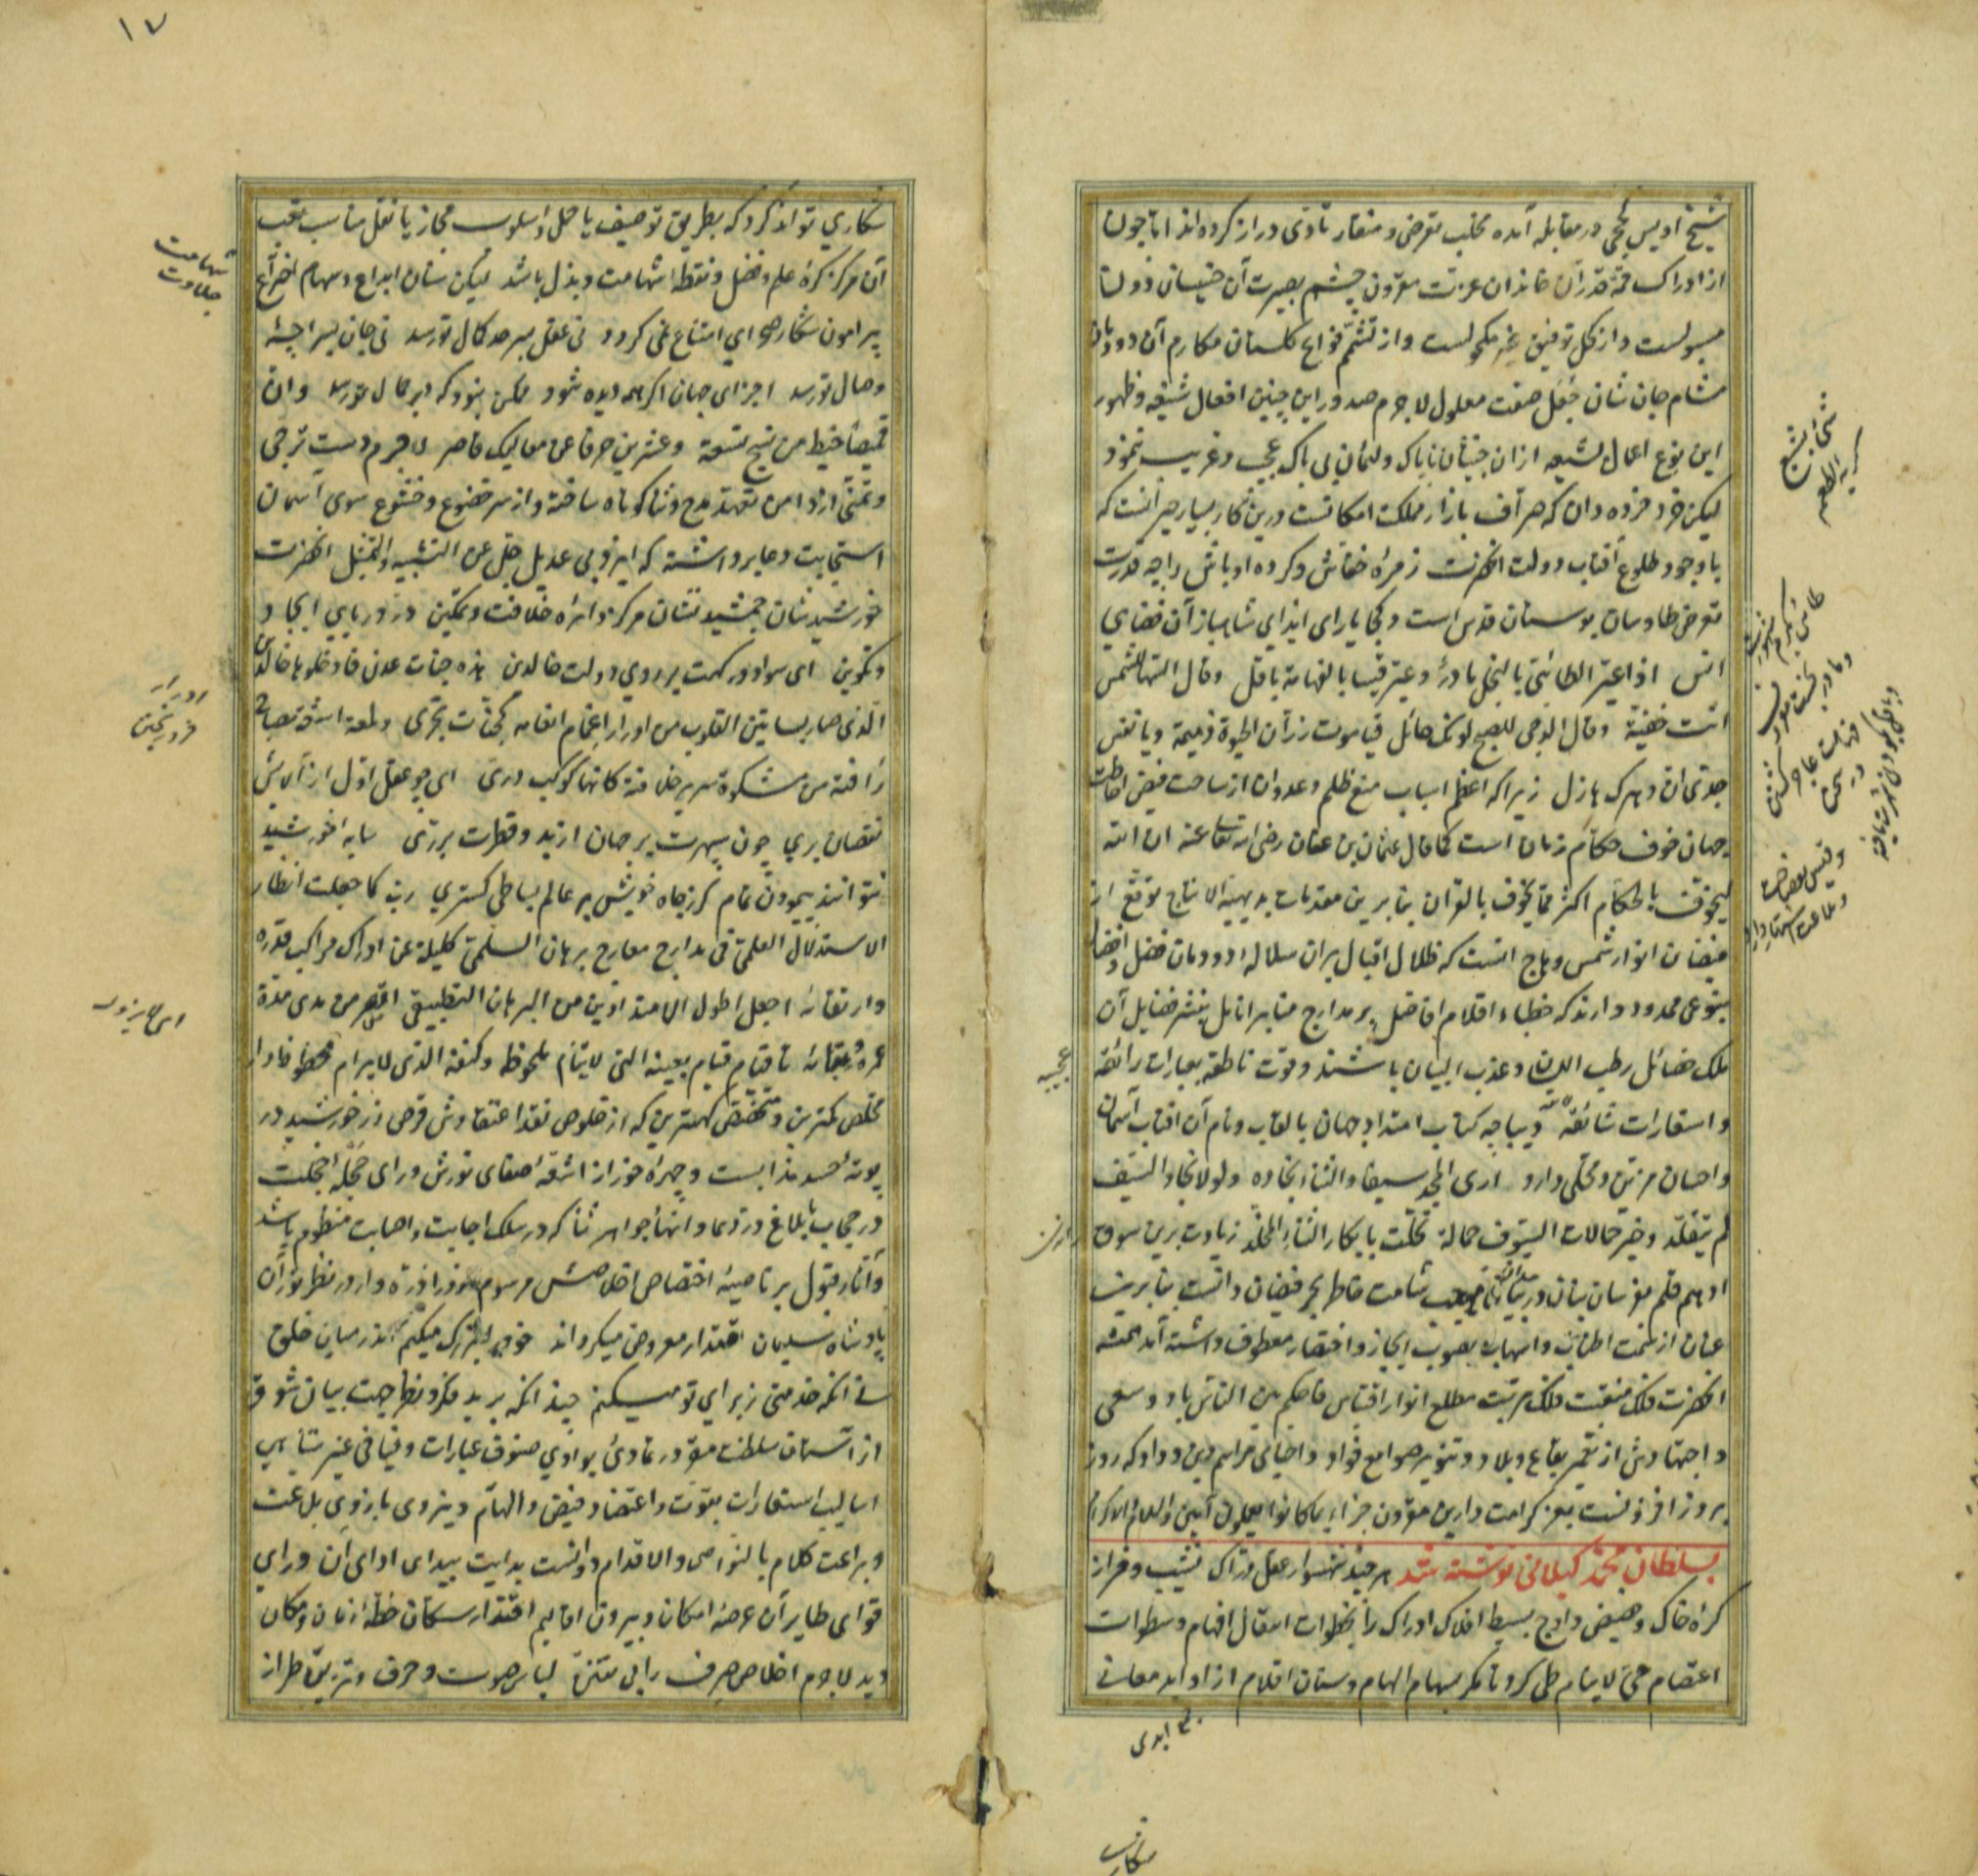 شیخ اویس کججی در مقابله آمده مخلب تعرض و منقار تاذی دراز کرده‌اند اما چون
از ادراک قدر آن خاندان عزت مقرون چشم بصیرت آن خسیسان دولت
مسبولست و از کحل توفیق غیر مکحولست و از تنشم فوایح گلستان مکارم آن دودمان
مشام جان شان جعل صفت معلول لاجرم صدور این چنین افعال شنیعه و ظهور
این نوع اعمال بشیعه ازان خبیثان ناپاک و لئیمان بی باک عجیب و غریب ننمود
لیکن خرد خرده دان که صراف بازار مملکت امکانست درین کار بسیار حیرانست که
با وجود طلوع آفتاب دولت آنحضرت زمرهٔ خفاش و کرده اوباش را چه قدرت
تعرض طاوسان بوستان قدس است و کجا یارای ایذای شاهباز آن فضای
انس اذا عیر الطائی بالبخل مادر و عیر قسا بالفهاهة باقل و قال السها للشمس
انت خفیة و قال الدجی للصبح لونک حائل فیا موت زر ان الحیوة ذمیمة و یا نفس
جدی ان دهرک هازل زیرا که اعظم اسباب منع ظلم و عدوان از ساحت فیض احاطت
جهان خوف حکام زمان است کما قال عثمان بن عفان رضی الله تعالی عنه ان الله
لیخوف بالحکام اکثر مما یخوف بالقران بنابرین مقدمات بدیهیة الانتاج توقع از
فیضان انوار شمس وهاج آنست که ظلال اقبال بران سلاله دودمان فضل و افضال
بنوعی ممدود دارند که خطباء اقلام افاضل بر مدارج منابر انامل بنشر فضایل آن
ملک خصائل رطب اللسان و عذب البیان باشند و قوت ناطقه بعبارات رائقه
و استعارات شائقه دیباجه کتاب امتداد جهان بالقاب و نام آن افتاب آسمان
و احسان مزین و محلی دارد اری المجد سیفا و الثناء نجاده و لولا نجاد السیف
لم یتقلد و خیر حمالات السیوف حمالة تحلت بابکار الثناء المخلد زیادت برین سوق
ادهم قلم
عنان از سمت اطناب و اسهاب بصوب ایجاز و اختصار معطوف داشته آمد همیشه
آنحضرت فلک منقبت ملک مرتبت مطلع انوار اقتباس فاحکم بین الناس باد و سعی
و اجتهادش از تعمیر بقاع و بلاد و تنویر صوامع فؤاد و احیائی مراسم دین و داد که روز
بروز افزونست بعز کرامت دارین مقرون جزاء بما کانوا یعملون آمین
بسلطان محمد کیلانی نوشته شد هر چند شهسوار عقل دراک نشیب و فراز
کره خاک و حضیض و اوج بسیط افلاک ادراک را بخطوات انتقال افهام و سطوات
اعتصام حی لاینام طی کرد تا مگر بسهام الهام و سنان اقلام از اوابد معانی
۱۷
شکاری تواند کرد که بطریق توصیف یا حمل و اسلوب مجاز یا نقل مناسب لقب
آن مرکز کرهٔ علم و فضل و نقطه شهامت و بذل باشد لیکن سنان ابداع و سهام اختراع
پیرامون شکار صحرای امتناع نمی کردد نی عقل بسرحد کمال تو رسد نی جان بسراچهٔ
وصال تو رسد اجزای جهان اگر همه دیده شود ممکن نبود که بر جمال تو رسد و ان
قمیصا خیط من نسج تسعة و عشرین حرفا عن معالیک قاصر لاجرم دست ترجی
و تمنی از دامن تعهد مدح و ثنا کوتاه ساخته و از سر خضوع و خشوع سوی آسمان
استجابت دعا برداشته که ایزد بی عدیل جل عن التشبیه و التمثیل آنحضرت
خورشید نشان جمشید نشان مرکز دائره خلافت و تمکین در دریایی ایجاد
و تکوین ای سواد درگهت بر روی دولت خالدین هذه جنات عدن فادخلوها خالدین
الذی صار بساتین القلوب من ادرار اغمام انعامه کجنات تجری و لمعة اشعة مصباح
رافته من مشکوة سریر خلافته کانها کوکب دری ای چو عقل اول از آلایش
نقصان بری چون سپهرت بر جهان از بدو فطرت برتری سایه خورشید
نتوانند پیمودن تمام گر ز جاه خویش بر عالم بساطی گستری رب کما جعلت انظار
الاستدلال العلمی فی مدارج معارج برهان السلمی کلیلة عن ادراک مراکب قدره
و ارتقائه اجعل اطول الامتدادین من البرهان التطبیقی اقصر من مدی مدة
عمره و بقائه تا قتام قیام بعینه التی لا ینام ملحوظ و کنفه الذی لا یرام محظوظ داراد
مخلص کمترین و متخصص کهترین که از خلوص نقد اعتقادش قرص زر خورشید در
بوته حسد مذابست و چهره خور از اشعه صفای نورش ورای حجلهٔ خجلت
در حجاب بابلاغ درر دعا و انهاء جواهر ثنا که در سلک اجابت و اصابت منظوم باشد
و آثار قبول بر ناصیهٔ اختصاص اخلاصش مرسوم هر ذره وار در نظر نور آن
پادشاه سلیمان اقتدار معروض میکرداند خود را بزرگ میکنم اندر میان خلق
نه آنکه خدمتی ز برای تو میکنم چندانکه برید فکر و نظر جهت بیان شوق
از آستان سلطنت مقر در تمادی بوادی صنوف عبارات و فیافی غیر متناهی
اسالیب استعارات بقوت و اعتضاد فیض و الهام و نیروی بازوی بلاغت
و براعت کلام بالنواصی و الاقدام دوانست بدایت بیدای ادای آن ورای
قوای طایران عرصهٔ امکان و بیرون اقالیم اقتدار سکان خطهٔ زمان و مکان
دید لاجرم اخلاص صرف را بی تستر لباس صوت و حرف و تزیین طراز
شهامت
جلادت
ادرار
فرو ریختن
عجیبه